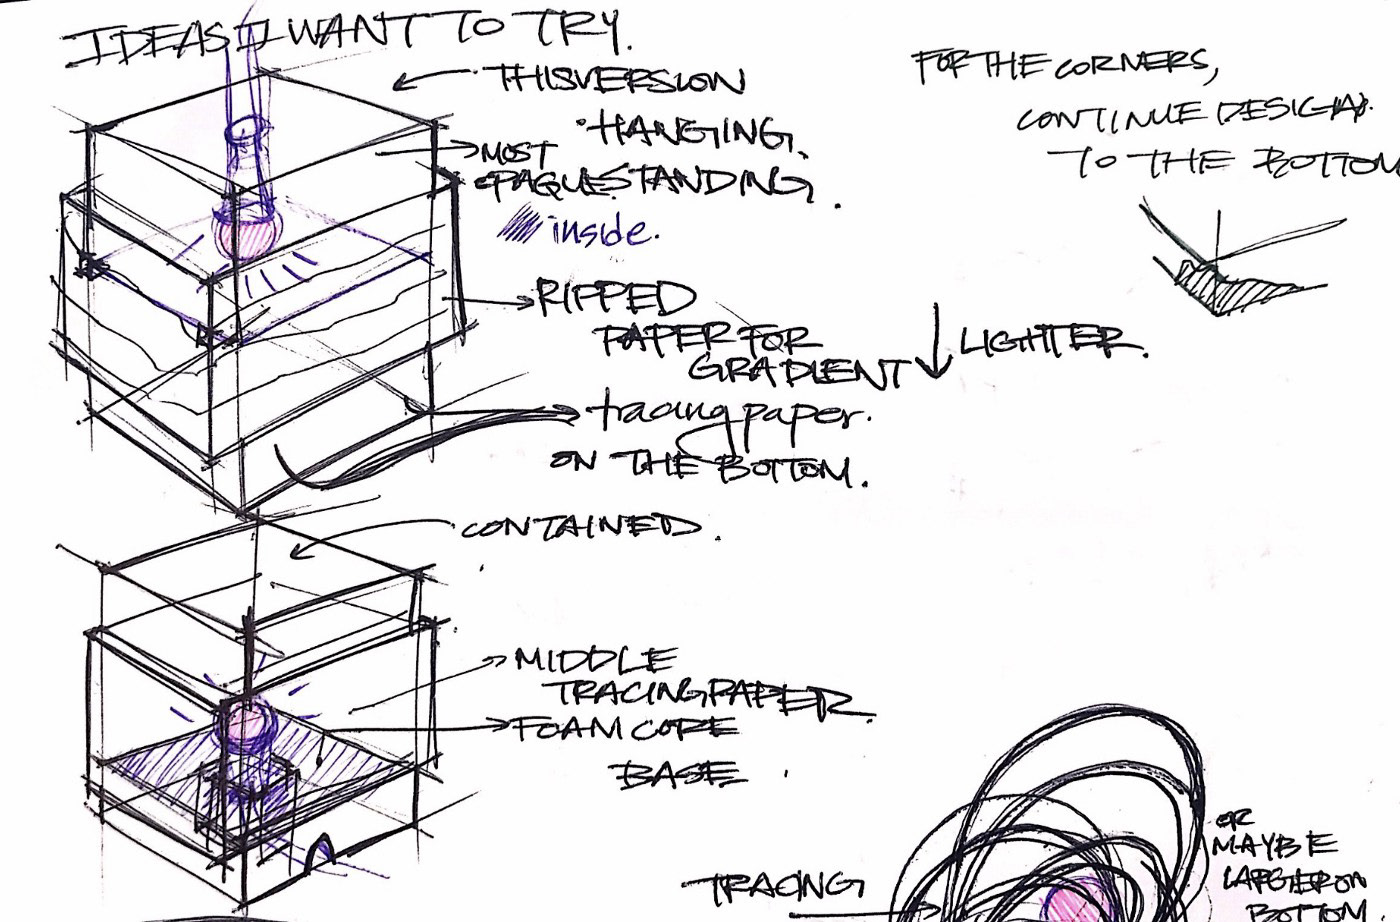 IDEAS I WANT TO TRY.
THIS VERSION
HANGING.
MOST
OPAQUE STANDING.
inside.
RIPPED
PAPER FOR
GRADIENT
LIGHTER.
tracing paper.
ON THE BOTTOM.
FOR THE CORNERS,
CONTINUE DESIGN
TO THE BOTTOM
CONTAINED.
MIDDLE
TRACING PAPER.
FOAM CORE
BASE.
TRACING
OR
MAYBE
LARGER ON
BOTTOM.